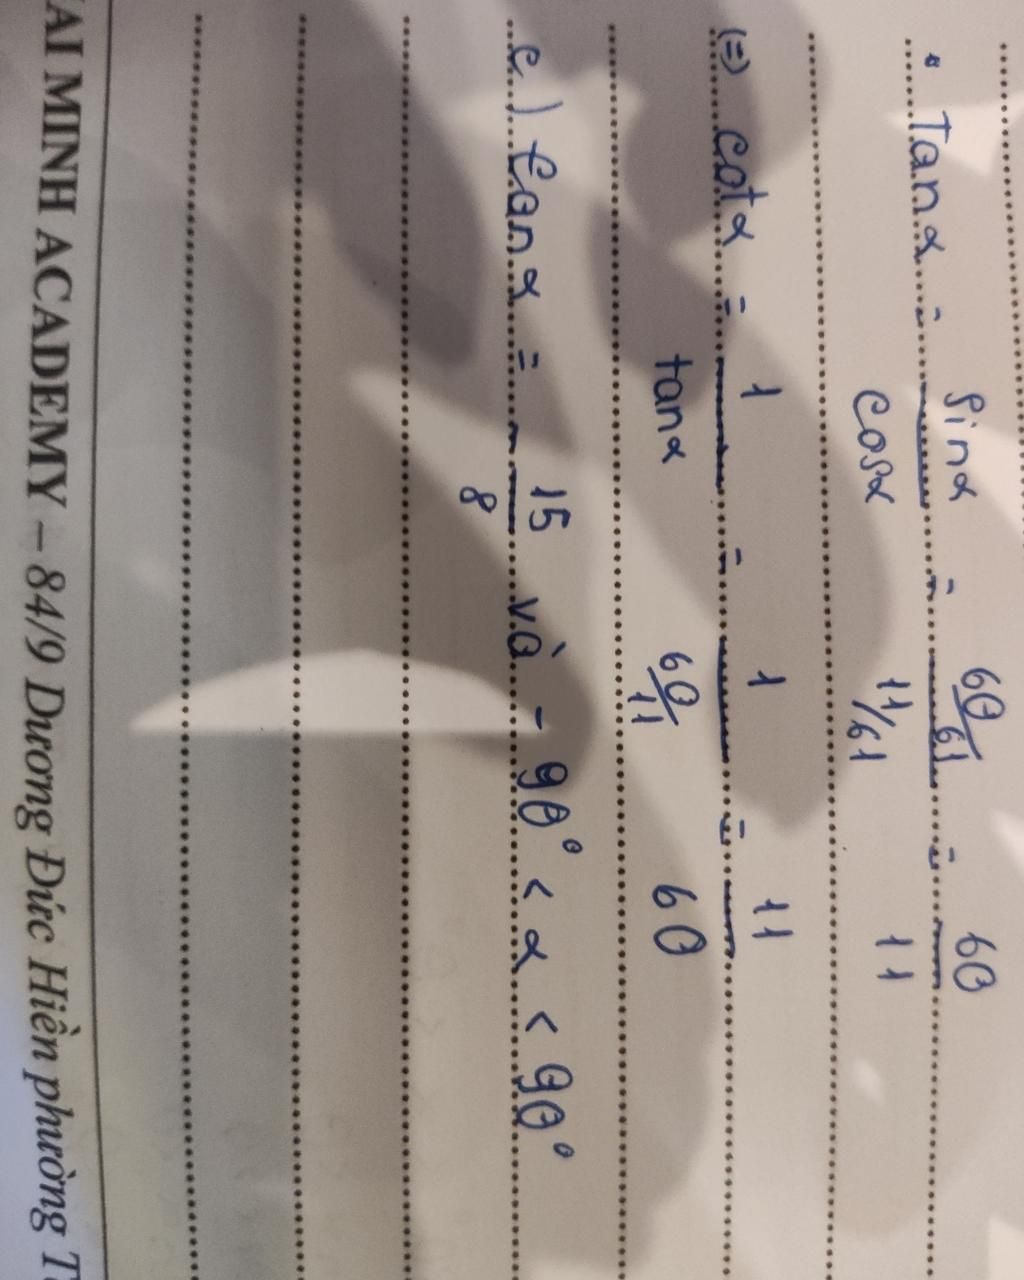 * Tanα = sinα / cosα = 60/61 / 11/61 = 60 / 11
(=) cotα = 1 / tanα = 1 / 60/11 = 11 / 60
c.) tanα = - 15 / 8 và - 90° < α < 90°
AI MINH ACADEMY – 84/9 Dương Đức Hiền phường T